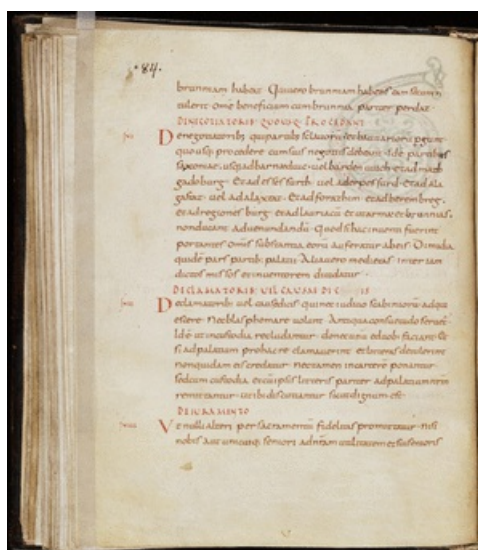 ·84·
brunniam habeat Qui vero brunniam habens eam secum n
tulerit Omē beneficium cum brunnia pariter perdat
DE NEGOTIATORIB; QUO USQ; PROCEDANT
De negotiatorib; qui partib; sclavorū et avarorū pgunt
quousq; procedere cum suis negotiis debeant · Idē partibus
saxoniae · usq; ad bardenuuih · vel
gadoburg · Et ad erpesfurd · Et ad ala
Et ad foracheim · et ad breemberg ·
et ad regines burg · et ad lauriacū et ut arma et brunnias ·
non ducant ad venundandū · Quod si hac inventi fuerint
portantes omis substantia eorū auferatur ab eis · Dimidia
quidē pars partib; palatii · Alia vero medietas · inter iam
dictos missos et inventorem dividatur ·
DE CLAMATORIB; VEL CAUSIDICIS
De clamatorib; vel causidicis qui nec iudiciū scabinorū adqui
escere · Nec blasphemare volunt Antiqua consuetudo servet
Idē ut in custodia recludantur · donec unū e duob; faciant · Et
si ad palatium pro hac re clamaverint et litteras detulerint
non quidam eis credatur nec tamen in carcere ponantur
sed cum custodia et cū ipsis litteris pariter ad palatium nrm
remittantur · ut ibi discutiantur sicut dignum est ·
DE IURAMENTO
Ut nulli alteri per sacramentū fidelitas promittatur · nisi
nobis aut unicuiq; seniori ad nr̄am utilitatem et sui senioris